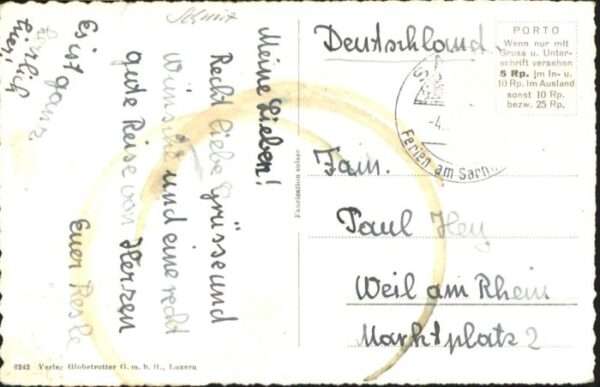 Schweiz
Meine Lieben!
Recht liebe Grüsse und
Wünsche und eine recht
gute Reise von Herzen
Euer
Es ist ganz
Deutschland
PORTO
Wenn nur mit
Gruss u. Unter-
schrift versehen
5 Rp. im In- u.
10 Rp. im Ausland
sonst 10 Rp.
bezw. 25 Rp.
Ferien am Sarn
Fam.
Paul Hey
Weil am Rhein
Marktplatz 2
Fabrication suisse
6243 Verlag Globetrotter G. m. b. H., Luzern